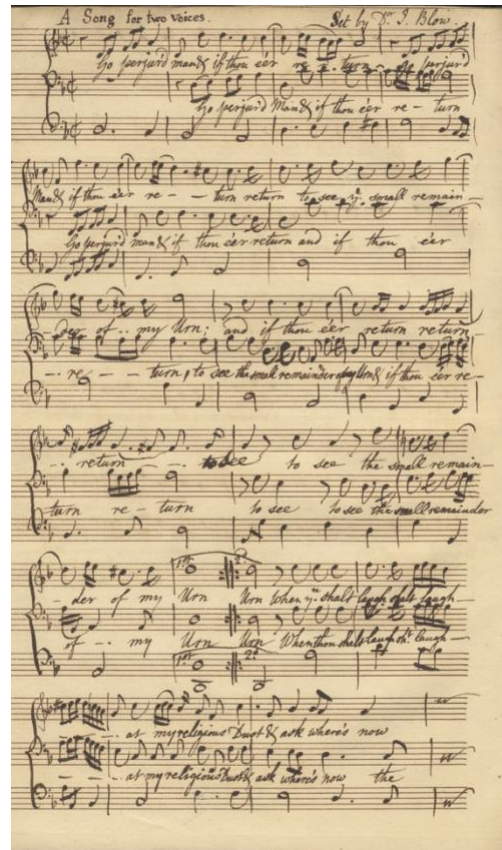 A Song for two Voices. Set by Dr. J. Blow.
Go perjur'd man & if thou e'er re - turn Go perjur'd
Go perjur'd Man & if thou e'er re - turn
Man & if thou e'er re - - turn return to see ye. small remain
Go perjur'd man & if thou e'er return and if thou e'er
- der of . . my Urn; and if thou e'er return return
- - re - - turn, to see the small remainder of my Urn & if thou e'er re -
- . return - . to see to see the small remain -
turn re - turn to see to see the small remainder
- der of my Urn Urn When yu. shalt laugh shalt laugh -
1st 2d
of - . my Urn Urn When thou shalt laugh laugh -
1st 2d
- - - . at my religious Dust & ask where's now
- - - . at my religious Dust & ask where's now the